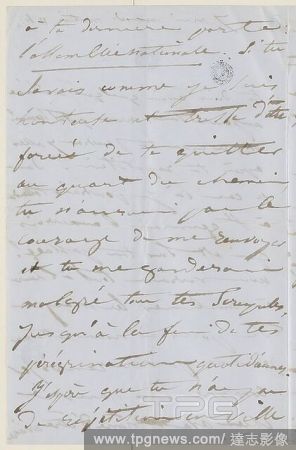 à ta dernière porte
l'assemblée nationale. Si tu
savais comme je suis
honteusement triste d'être
forcée de te quitter
au quart du chemin,
tu n'aurais pas le
courage de me renvoyer
et tu me garderais
malgré tous tes scrupules,
jusqu'à la fin de tes
pérégrinations quotidiennes.
J'espère que tu n'as pas
de répétition
TPG
www.tpgnews.com / 達志影像